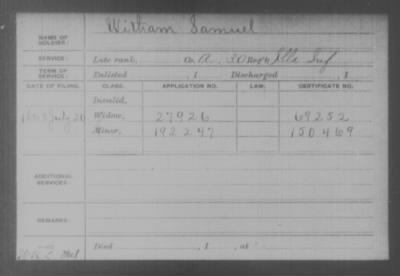 NAME OF SOLDIER: William Samuel
SERVICE: Late rank, Co. A, 30 Reg't Ills Inf
TERM OF SERVICE: Enlisted , 1 Discharged , 1
DATE OF FILING. CLASS. APPLICATION NO. LAW. CERTIFICATE NO.
Invalid,
July 20 Widow, 27926 69252
Minor, 192247 150469
ADDITIONAL SERVICES:
REMARKS:
Died , 1 , at